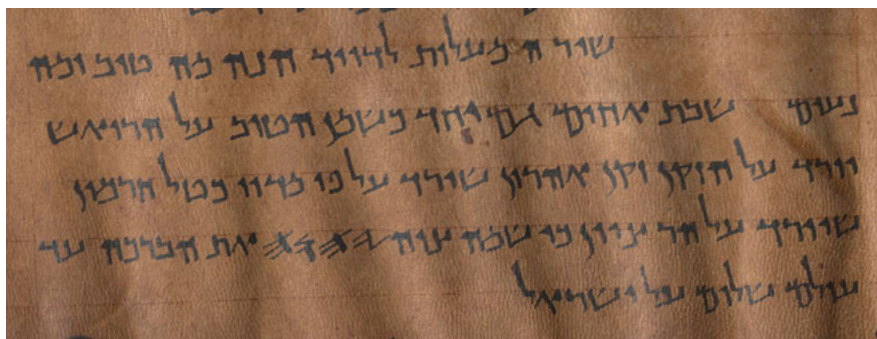 שיר המעלות לדויד הנה מה טוב ומה
נעים שבת אחים גם יחד כשמן הטוב על הרואש
יורד על הזקן זקן אהרון שירד על פי מדיו כטל חרמון
שיורד על הר ציון כי שמה צוה 𐤉𐤄𐤅𐤄 את הברכה עד
עולם שלום על ישראל